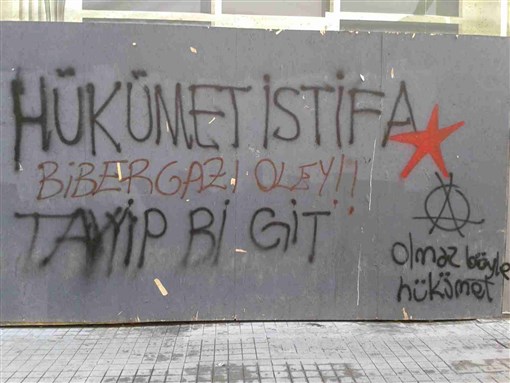 HÜKÜMET İSTİFA
BİBERGAZI OLEY!!
TAYYİP Bİ GİT
olmaz böyle
hükümet